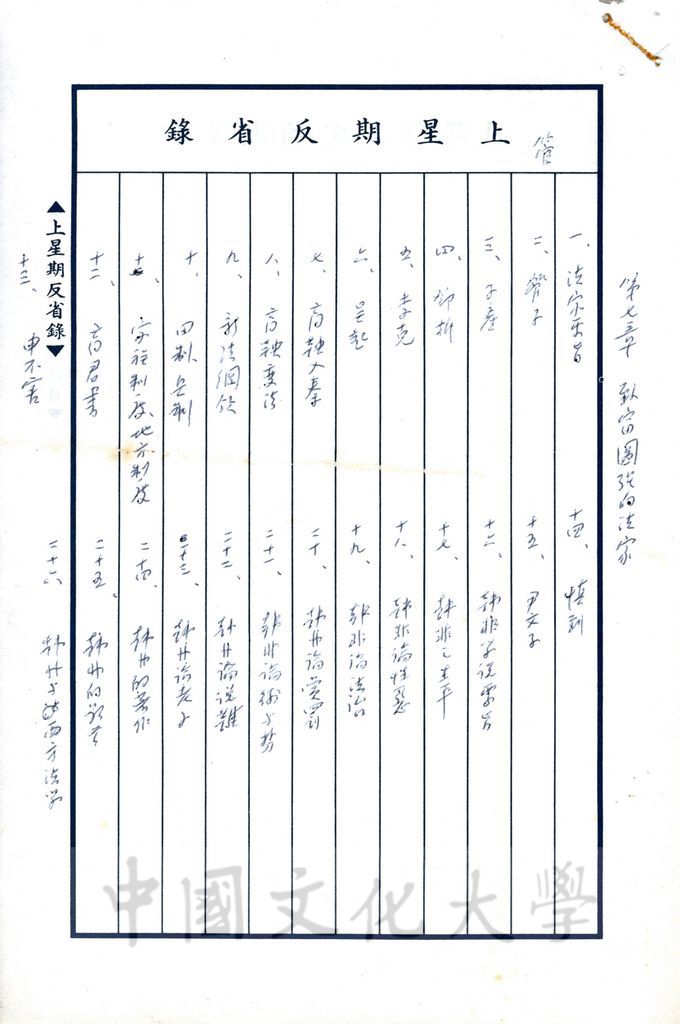 上星期反省錄
管
第七章 致富圖強的法家
一、法家要旨
二、管子
三、子產
四、鄧析
五、李克
六、吳起
七、商鞅入秦
八、商鞅變法
九、新法綱領
十、田制兵制
十一、家族制度、地方制度
十二、商君書
十三、申不害
十四、慎到
十五、尹文子
十六、韓非學說要旨
十七、韓非之生平
十八、韓非論性惡
十九、韓非論法治
二十、韓非論賞罰
二十一、韓非論術與勢
二十二、韓非論說難
二十三、韓非論老子
二十四、韓非的著作
二十五、韓非的
二十六、韓非與西方法學
▲上星期反省錄▼
中國文化大學